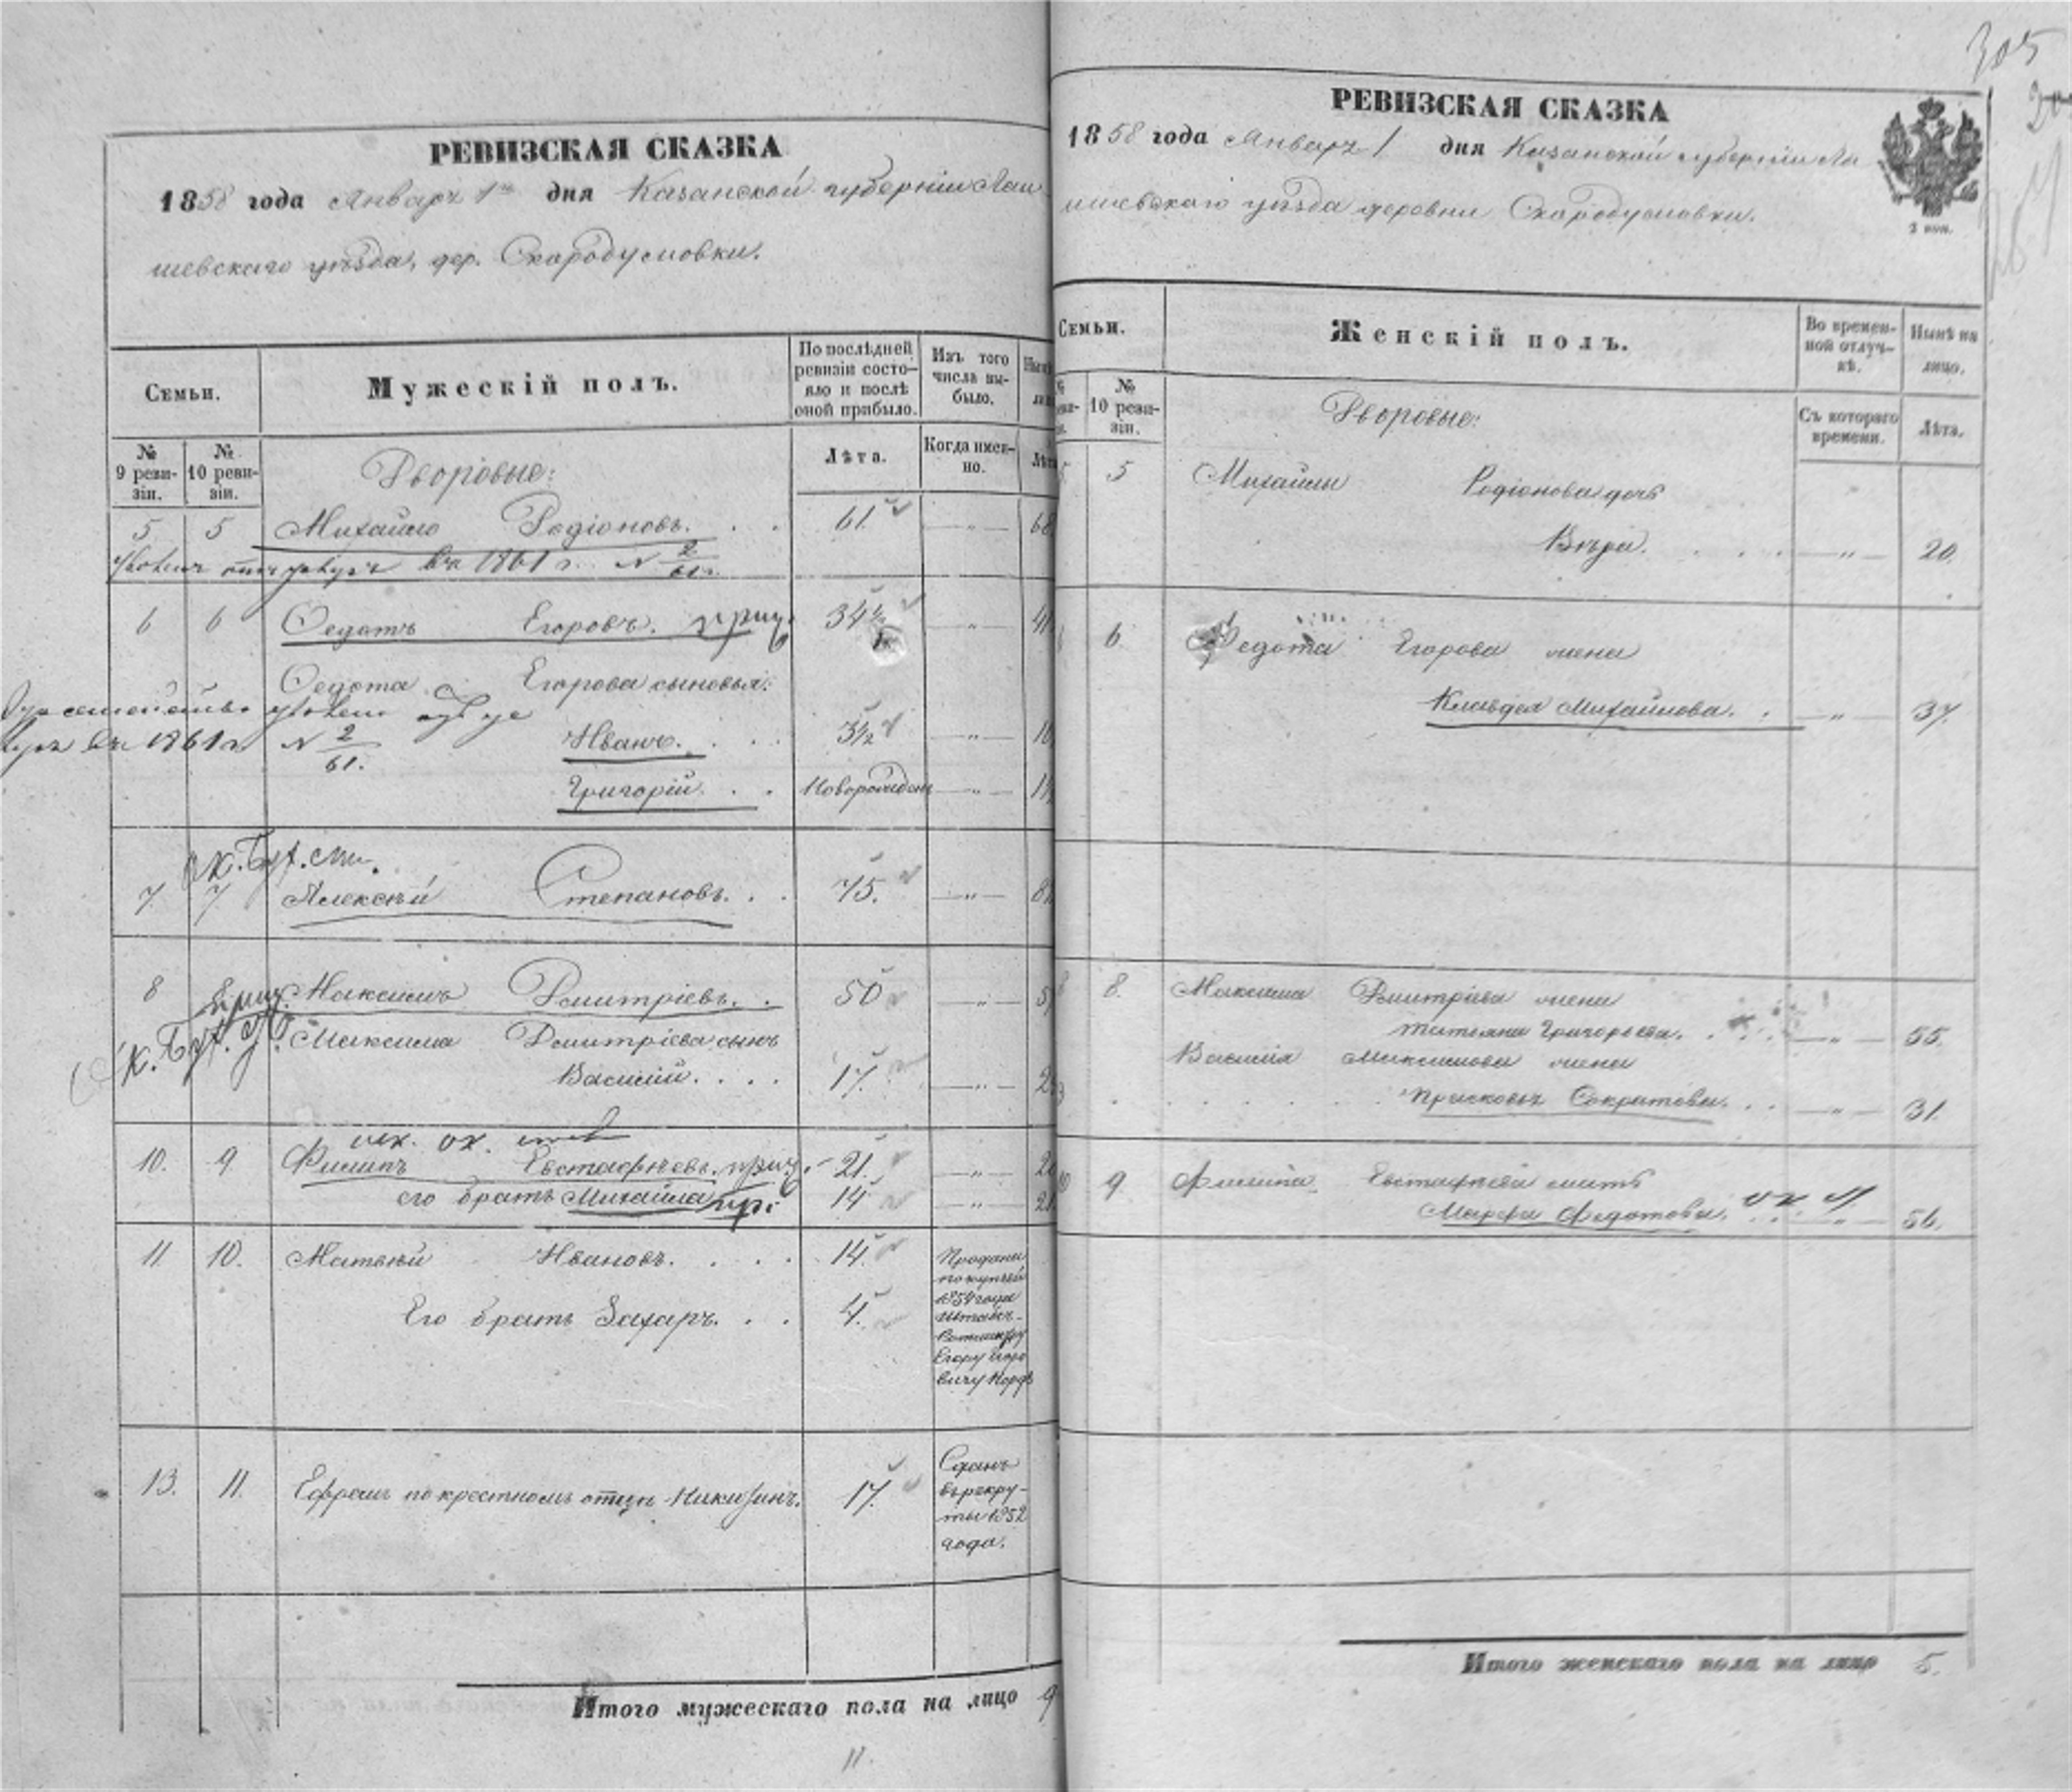 РЕВИЗСКАЯ СКАЗКА
1858 года Январь 1го дня Казанской губерніи Лаи
шевскаго уѣзда, дер. Скородумовки.
Семьи.
Мужескій полъ.
По послѣдней ревизіи состояло и послѣ оной прибыло.
Изъ того числа выбыло.
№ 9 ревизіи.
№ 10 ревизіи.
Лѣта.
Когда именно.
Дворовые:
5 5 Михайло Родіоновъ. . . 61 —„— 68
въ 1861 г. № 2/61
6 6 Ѳедотъ Егоровъ. 34 1/2 —„— 41
Ѳедота Егорова сыновья:
Иванъ. . . . 3 1/2 —„— 10
въ 1861 г. № 2/61.
Григорій. . . Новорожден —„—
7 7 Алексѣй Степановъ. . . 75. —„—
8 Максимъ Дмитріевъ. . 50 —„—
Максима Дмитріева сынъ
Василій. . . . 17. —„—
10. 9 Филипъ Евстафьевъ. 21. —„—
его братъ Михайла 14 —„— 21
11 10. Матвѣй Ивановъ. . . . 14.
Его братъ Захаръ. . . 4.
Проданы
по купчей
1854 года
Штабсъ-
Ротмистру
Егору Его
вичу Корфъ
13. 11. Ефремъ по крестномъ отцѣ Никизинъ. 17.
Сданъ
въ рекру-
ты 1852
года.
Итого мужескаго пола на лицо 9
11.
305
РЕВИЗСКАЯ СКАЗКА
1858 года Январь 1 дня Казанской губерніи Ла
ишевскаго уѣзда деревни Скородумовки.
2 коп.
Семьи.
Женскій полъ.
Во временной отлучкѣ.
Нынѣ на лицо.
№ 10 ревизіи.
Съ котораго времени.
Лѣта.
Дворовые:
5 Михайлы Родіонова дочь
Вѣра. . . . —„— 20.
6. Федота Егорова жена
Клавдея Михайлова. . —„— 37.
8. Максима Дмитріева жена
Татьяна Григорьева. . . . —„— 55.
Василія Максимова жена
Прасковья Сократова. . . —„— 31.
9 Филипа Евстафьева мать
Марфа Федотова. —„— 56.
Итого женскаго пола на лицо 5.